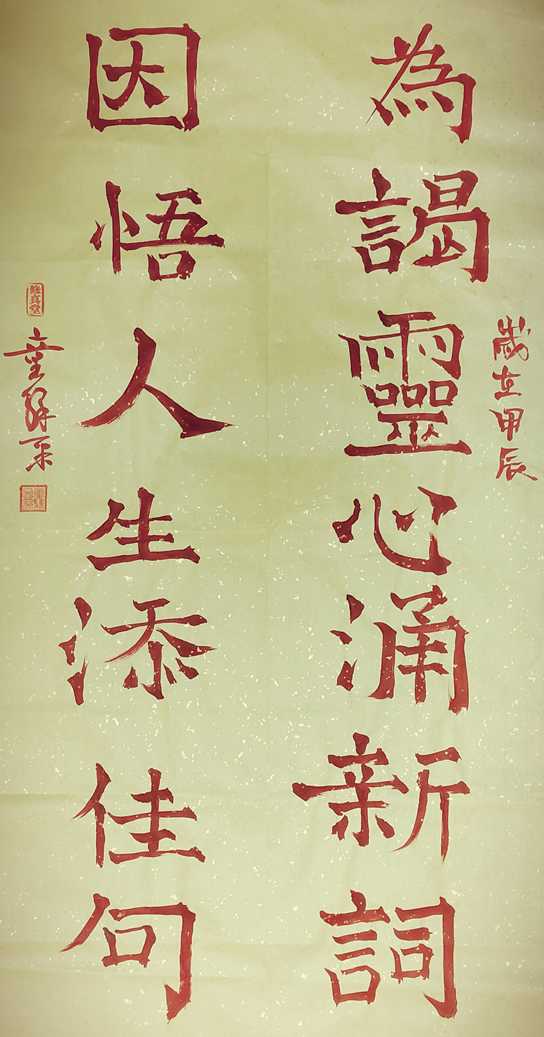 歲在甲辰
為謁靈心涌新詞
因悟人生添佳句